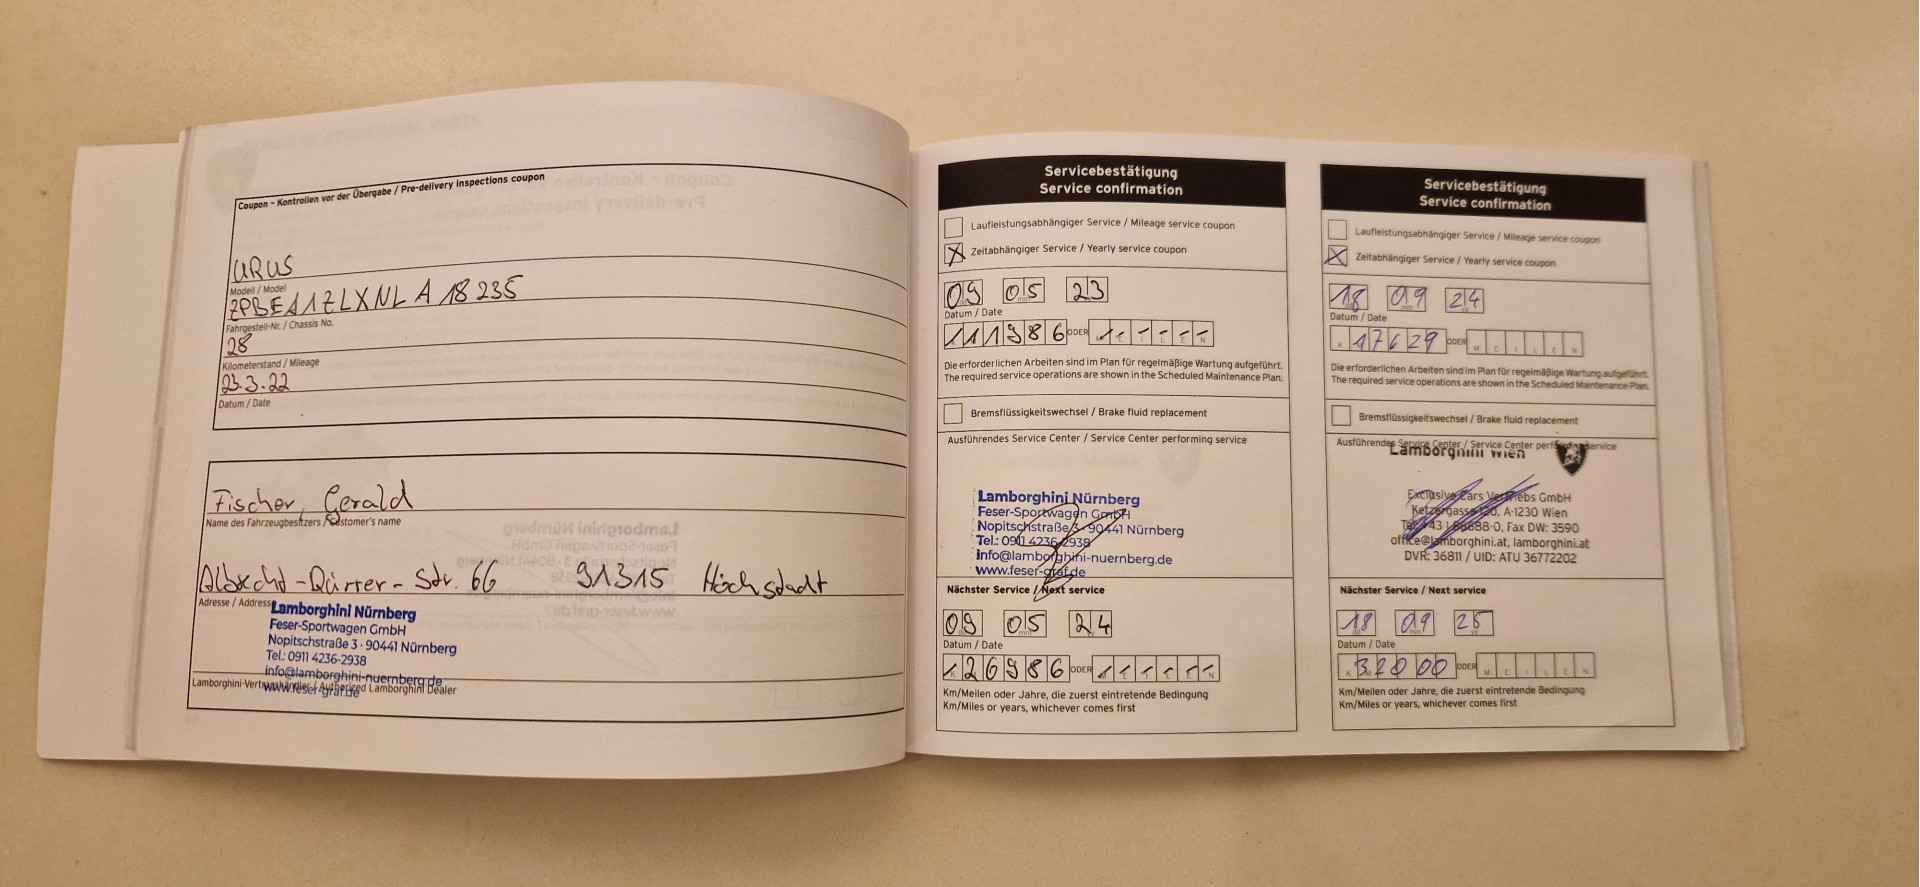 Coupon – Kontrollen vor der Übergabe / Pre-delivery inspections coupon
URUS
Modell / Model
ZPBEA1ZLXNLA18235
Fahrgestell-Nr. / Chassis No.
28
Kilometerstand / Mileage
23.3.22
Datum / Date
Fischer, Gerald
Name des Fahrzeugbesitzers / Customer's name
Albrecht-Dürrer-Str. 66 91315 Höchstadt
Adresse / Address
Lamborghini Nürnberg
Feser-Sportwagen GmbH
Nopitschstraße 3 · 90441 Nürnberg
Tel.: 0911 4236-2938
info@lamborghini-nuernberg.de
www.feser-graf.de
Lamborghini-Vertragshändler / Authorized Lamborghini Dealer
Servicebestätigung
Service confirmation
Laufleistungsabhängiger Service / Mileage service coupon
X Zeitabhängiger Service / Yearly service coupon
09 05 23
Datum / Date
111986 ODER
Die erforderlichen Arbeiten sind im Plan für regelmäßige Wartung aufgeführt.
The required service operations are shown in the Scheduled Maintenance Plan.
Bremsflüssigkeitswechsel / Brake fluid replacement
Ausführendes Service Center / Service Center performing service
Lamborghini Nürnberg
Feser-Sportwagen GmbH
Nopitschstraße 3 · 90441 Nürnberg
Tel.: 0911 4236-2938
info@lamborghini-nuernberg.de
www.feser-graf.de
Nächster Service / Next service
09 05 24
Datum / Date
126986 ODER
Km/Meilen oder Jahre, die zuerst eintretende Bedingung
Km/Miles or years, whichever comes first
Servicebestätigung
Service confirmation
Laufleistungsabhängiger Service / Mileage service coupon
X Zeitabhängiger Service / Yearly service coupon
18 09 24
Datum / Date
K 17629 ODER M E I L E N
Die erforderlichen Arbeiten sind im Plan für regelmäßige Wartung aufgeführt.
The required service operations are shown in the Scheduled Maintenance Plan.
Bremsflüssigkeitswechsel / Brake fluid replacement
Ausführendes Service Center / Service Center performing service
Lamborghini Wien
Exclusive Cars Vertriebs GmbH
Ketzergasse 120, A-1230 Wien
Fax DW: 3590
office@lamborghini.at, lamborghini.at
DVR: 36811 / UID: ATU 36772202
Nächster Service / Next service
18 09 25
Datum / Date
K 32000 ODER M E I L E N
Km/Meilen oder Jahre, die zuerst eintretende Bedingung
Km/Miles or years, whichever comes first